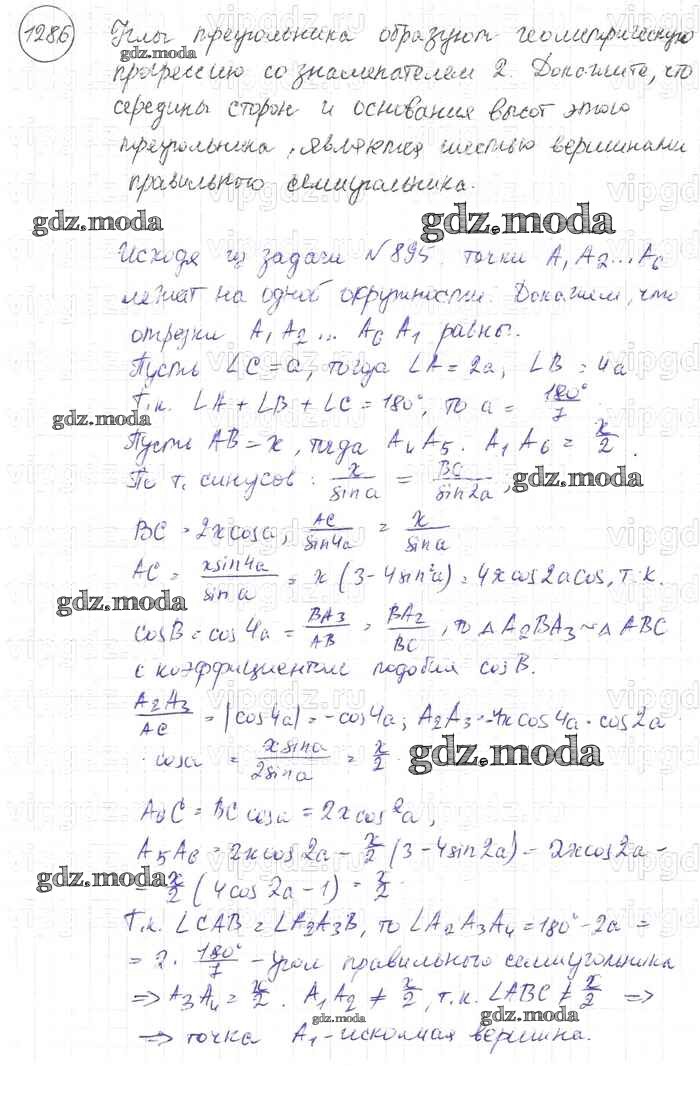 1286 Углы треугольника образуют геометрическую
прогрессию со знаменателем 2. Докажите, что
середины сторон и основания высот этого
треугольника, являются шестью вершинами
правильного семиугольника.
gdz.moda
Исходя из задачи №895, точки A₁A₂...A₆
лежат на одной окружности. Докажем, что
отрезки A₁A₂ ... A₆A₁ равны.
Пусть ∠C = a, тогда ∠A = 2a, ∠B = 4a
Т.к. ∠A + ∠B + ∠C = 180°, то a = 180°/7
Пусть AB = x, тогда A₄A₅ . A₁A₆ = x/2.
По т. синусов: x/sin a = BC/sin 2a,
BC = 2x cos a, AC/sin 4a = x/sin a
AC = x sin 4a/sin a = x (3 - 4 sin² a) = 4x cos 2a cos, т.к.
cos B = cos 4a = BA₃/AB = BA₂/BC, то △A₂BA₃ ~ △ABC
с коэффициентом подобия cos B.
A₂A₃/AC = |cos 4a| = -cos 4a; A₂A₃ = -4x cos 4a · cos 2a
· cos a = x sin a/2 sin a = x/2
A₆C = BC cos a = 2x cos² a,
A₅A₆ = 2x cos 2a - x/2 (3 - 4 sin 2a) - 2x cos 2a -
- x/2 (4 cos 2a - 1) = x/2
Т.к. ∠CAB = ∠A₂A₃B, то ∠A₂A₃A₄ = 180° - 2a =
= 2 · 180°/7 - угол правильного семиугольника
=> A₃A₄ = x/2. A₁A₂ ≠ x/2, т.к. ∠ABC ≠ x/2 =>
=> точка A₁ - искомая вершина.